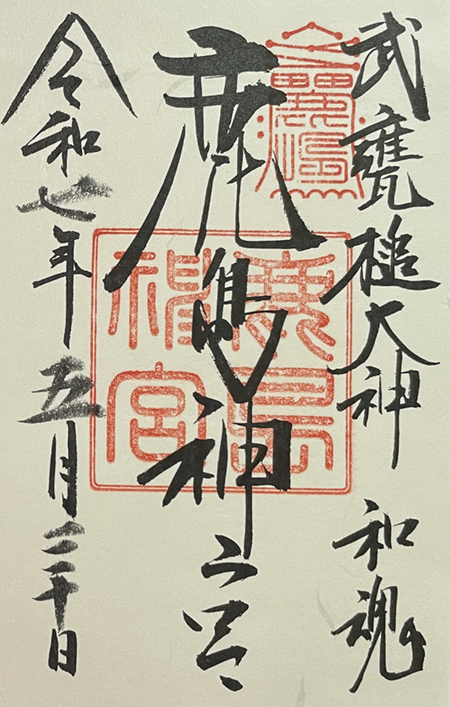 武甕槌大神 和魂
鹿島神宮
鹿島神宮
令和七年五月三十日